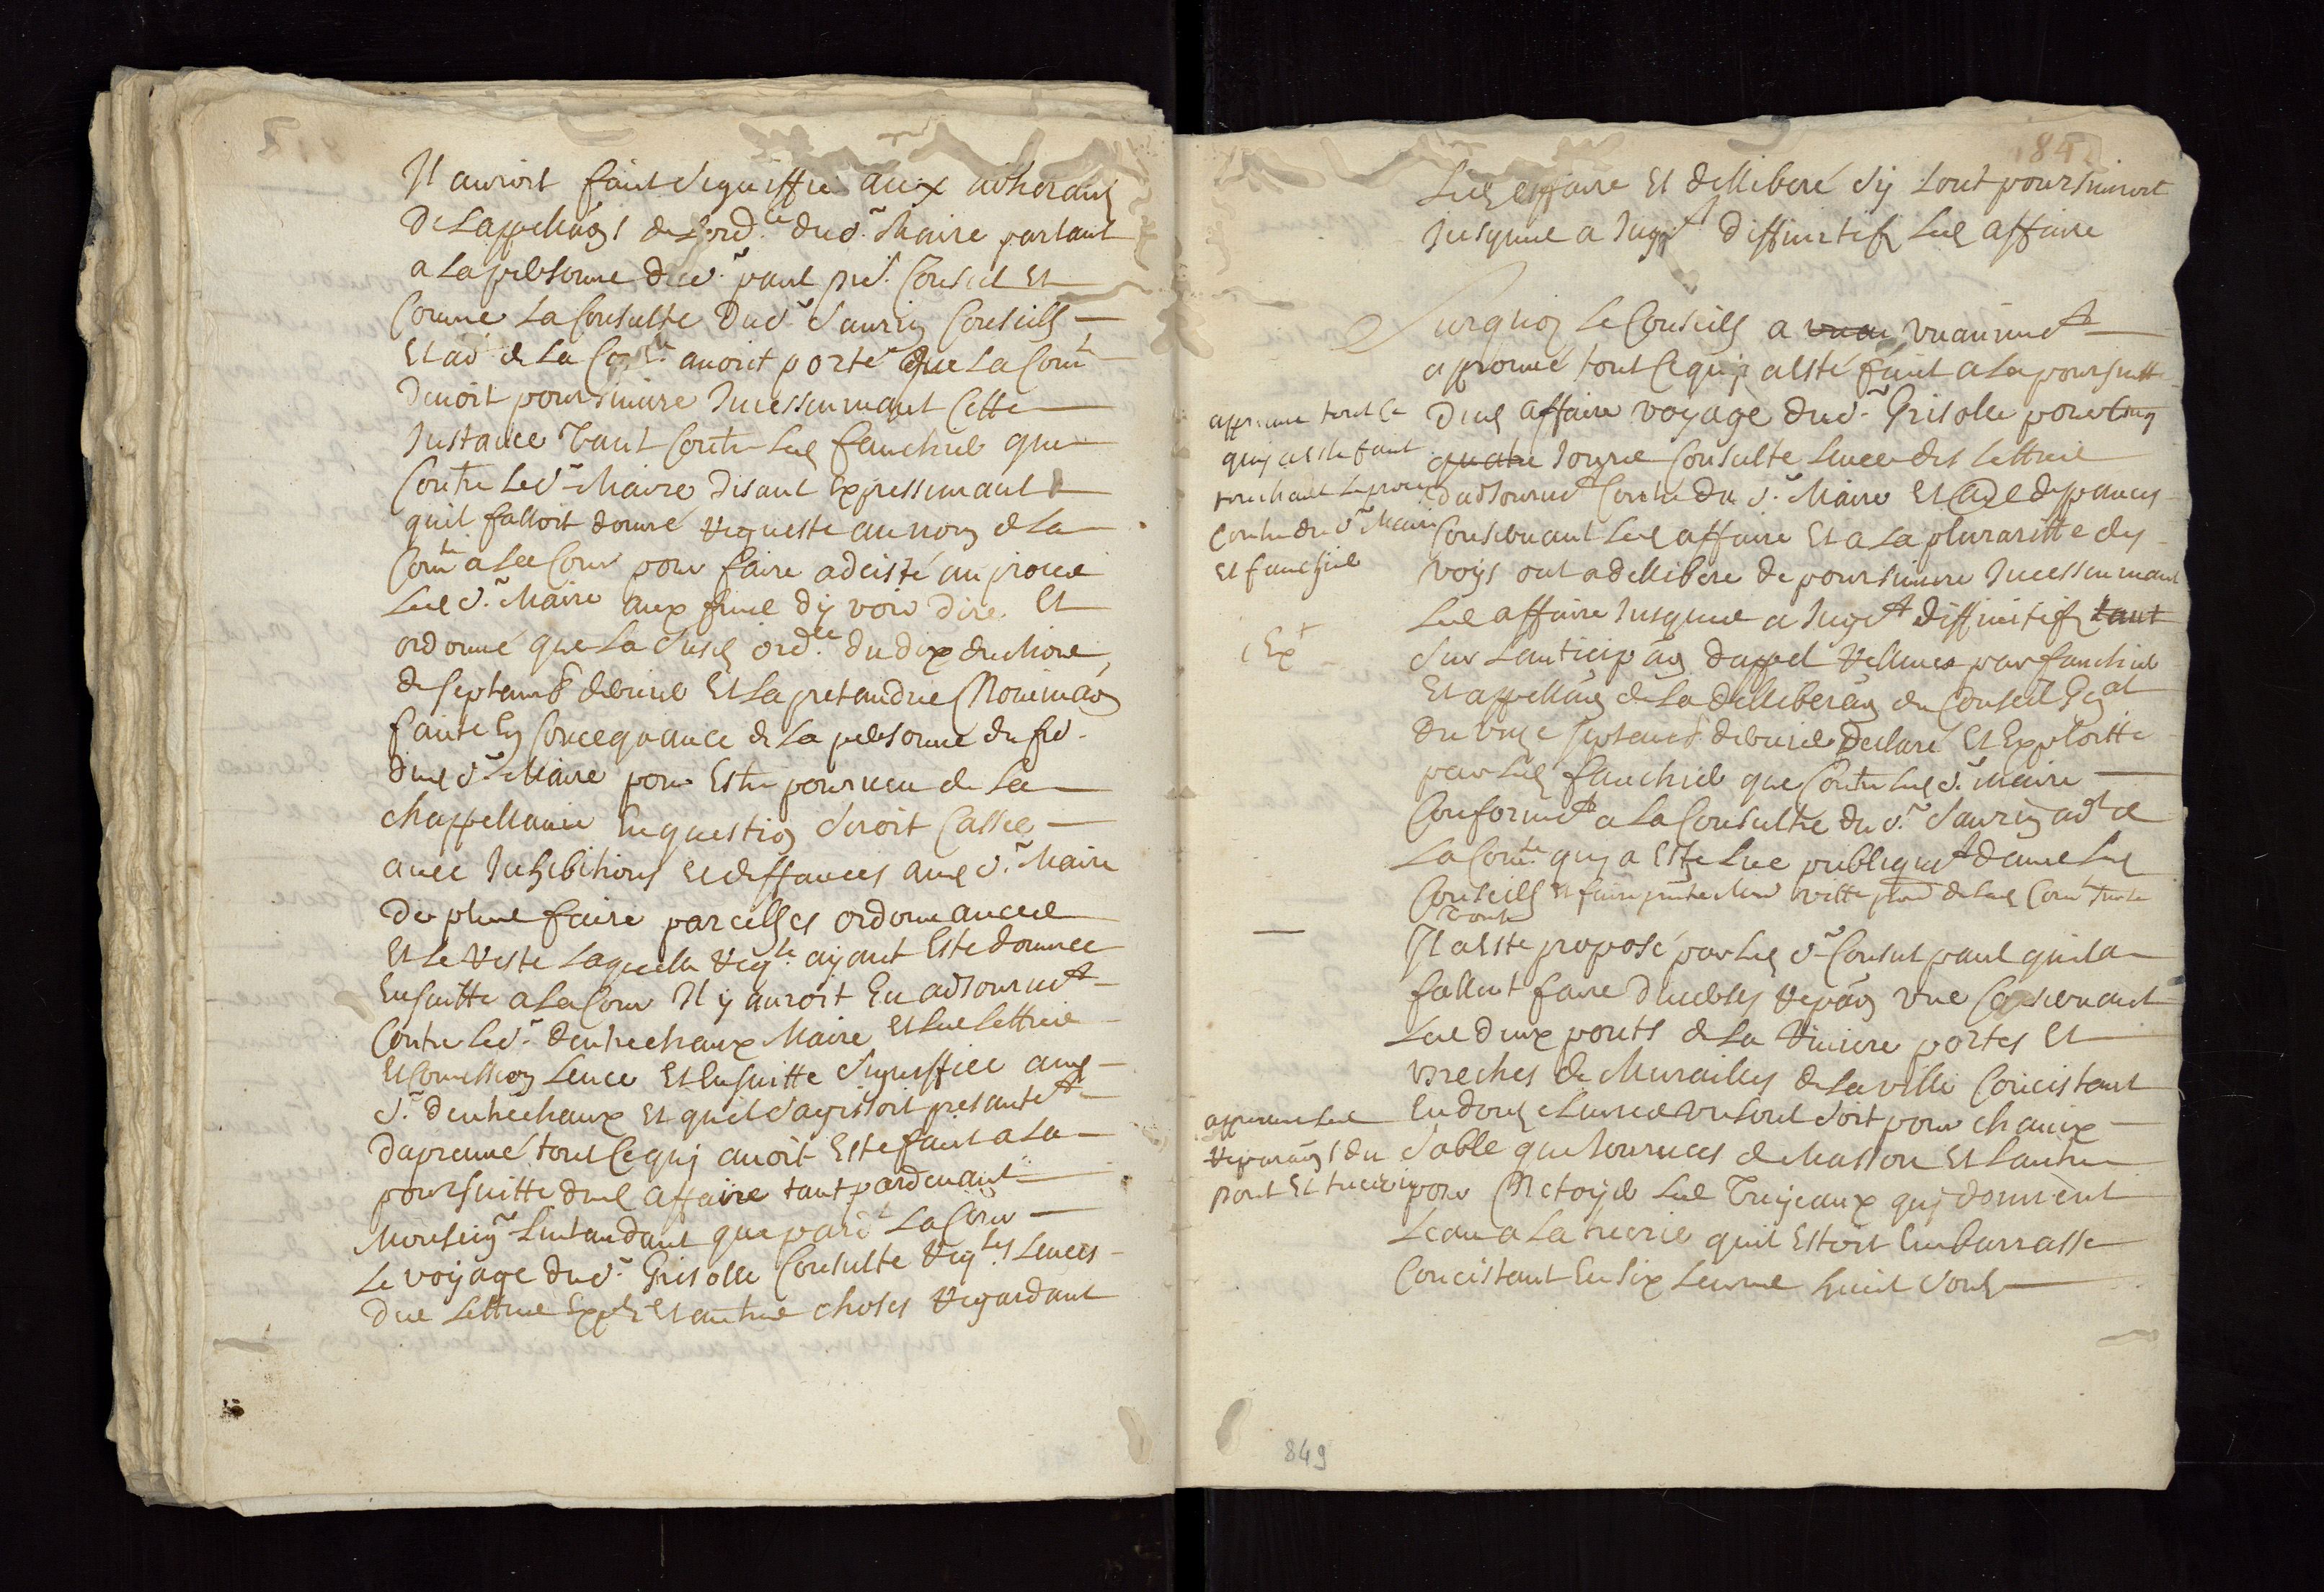 Il auroit fait signiffié aux adherans
De Lappella͠on de Lord.ce dud. s.r Maire parlant
a La personne dud. s.r paul p.r Consul Et
Comme La Consulte Dud. s.r Saurin Conseils
Et ad. de La Co.té auoit porté que La Com.té
Deuoit poursuiure Incessenmant Cette
Instance Tant Contre Led fauchier que
Contre Led. s.r Maire Disant Expressemant
quil falloit donné Requeste au nom de La
Com.té a La Cour pour faire adcisté au proces
Led s.r Maire aux fins dy voir Dire Et
ordonné que La Susd ord.ce du dix du Mois
de Septamb. dernier Et La pretandue Nomina͠on
faite En Concequance de La personne du fr.
dud s.r Maire pour Estre pourueu de La
chappellanie En question Seroit Cassée
auec Inhibitions et deffances aud s.r Maire
De plus faire parcelles ordonnances
Et Le Reste Laquelle Req.te ayant Esté donnée
Ensuitte a La Cour Il y auroit Eu adiournem.t
Contre Led. s.r dentrechaux Maire Et Les Lettres
Et Comission Leuée Et Ensuitte Signiffiée aud
s.r dentrechaux Et quil Sagissoit presantem.t
Daprouué tout Ce quy auoit Esté fait a La
poursuitte dud affaire tant pardeuant
Monseig.r Lintandant que pard.t La Cour
Le voyage dud. s.r Grisolle Consulte Req.tes Leuées
Des Lettres Exp.ts Et autres choses Regardant
84
Led affaire Et delliberé Sy Lont poursuiuroit
Jusques a Jugem.t Diffinitif Led affaire
Surquoy Le Conseils a vnanimem.t
approuué tout Ce quy a Esté fait a La poursuitte
Dud affaire voyage dud. s.r Grisolle pour Cinq
quatre Jours Consulte Leuée des Lettres
dadiournem.t Contre du s.r Maire Et despances
Conseruant Led affaire Et a La pluraritté des
voys ont a dellibere de poursuiure Incessenmant
Led affaire Jusques a Jugem.t diffinitif tant
Sur Lanticipa͠on dappel Relleuée par fauchier
Et appella͠on de La delibera͠on du Conseil Gn.al
Du vnze Septamb. dernier Declaré Et Exploitté
par Led fauchier que Contre Led s.r Maire
Conformem.t a La Consulte du s.r Saurin ad.t de
La Com.té quy a Esté Lue publiquem.t dans Led
Conseils
Il a Esté proposé par Led s.r Consul paul quil a
fallut faire diuerses Repa͠on vne Conseruant
Les deux ponts de La Riuiere portes Et
breches de Murailles de La ville Concistant
En douze Liures vn sout Soit pour chaux
Sable que Journées de Masson Et Lautre
pour Netoyer Les Tuyeaux quy donnent
Leau a La tuerie quil Estoit Embarrassé
Concistant En Six Liures huit Souls
approuue tout Ce
quy a Esté fait
touchant Le proces
Contre du s.r Maire
Et fauchier
Ex.t
approuue Les
Repara͠ons du
pont Et tuerie
849